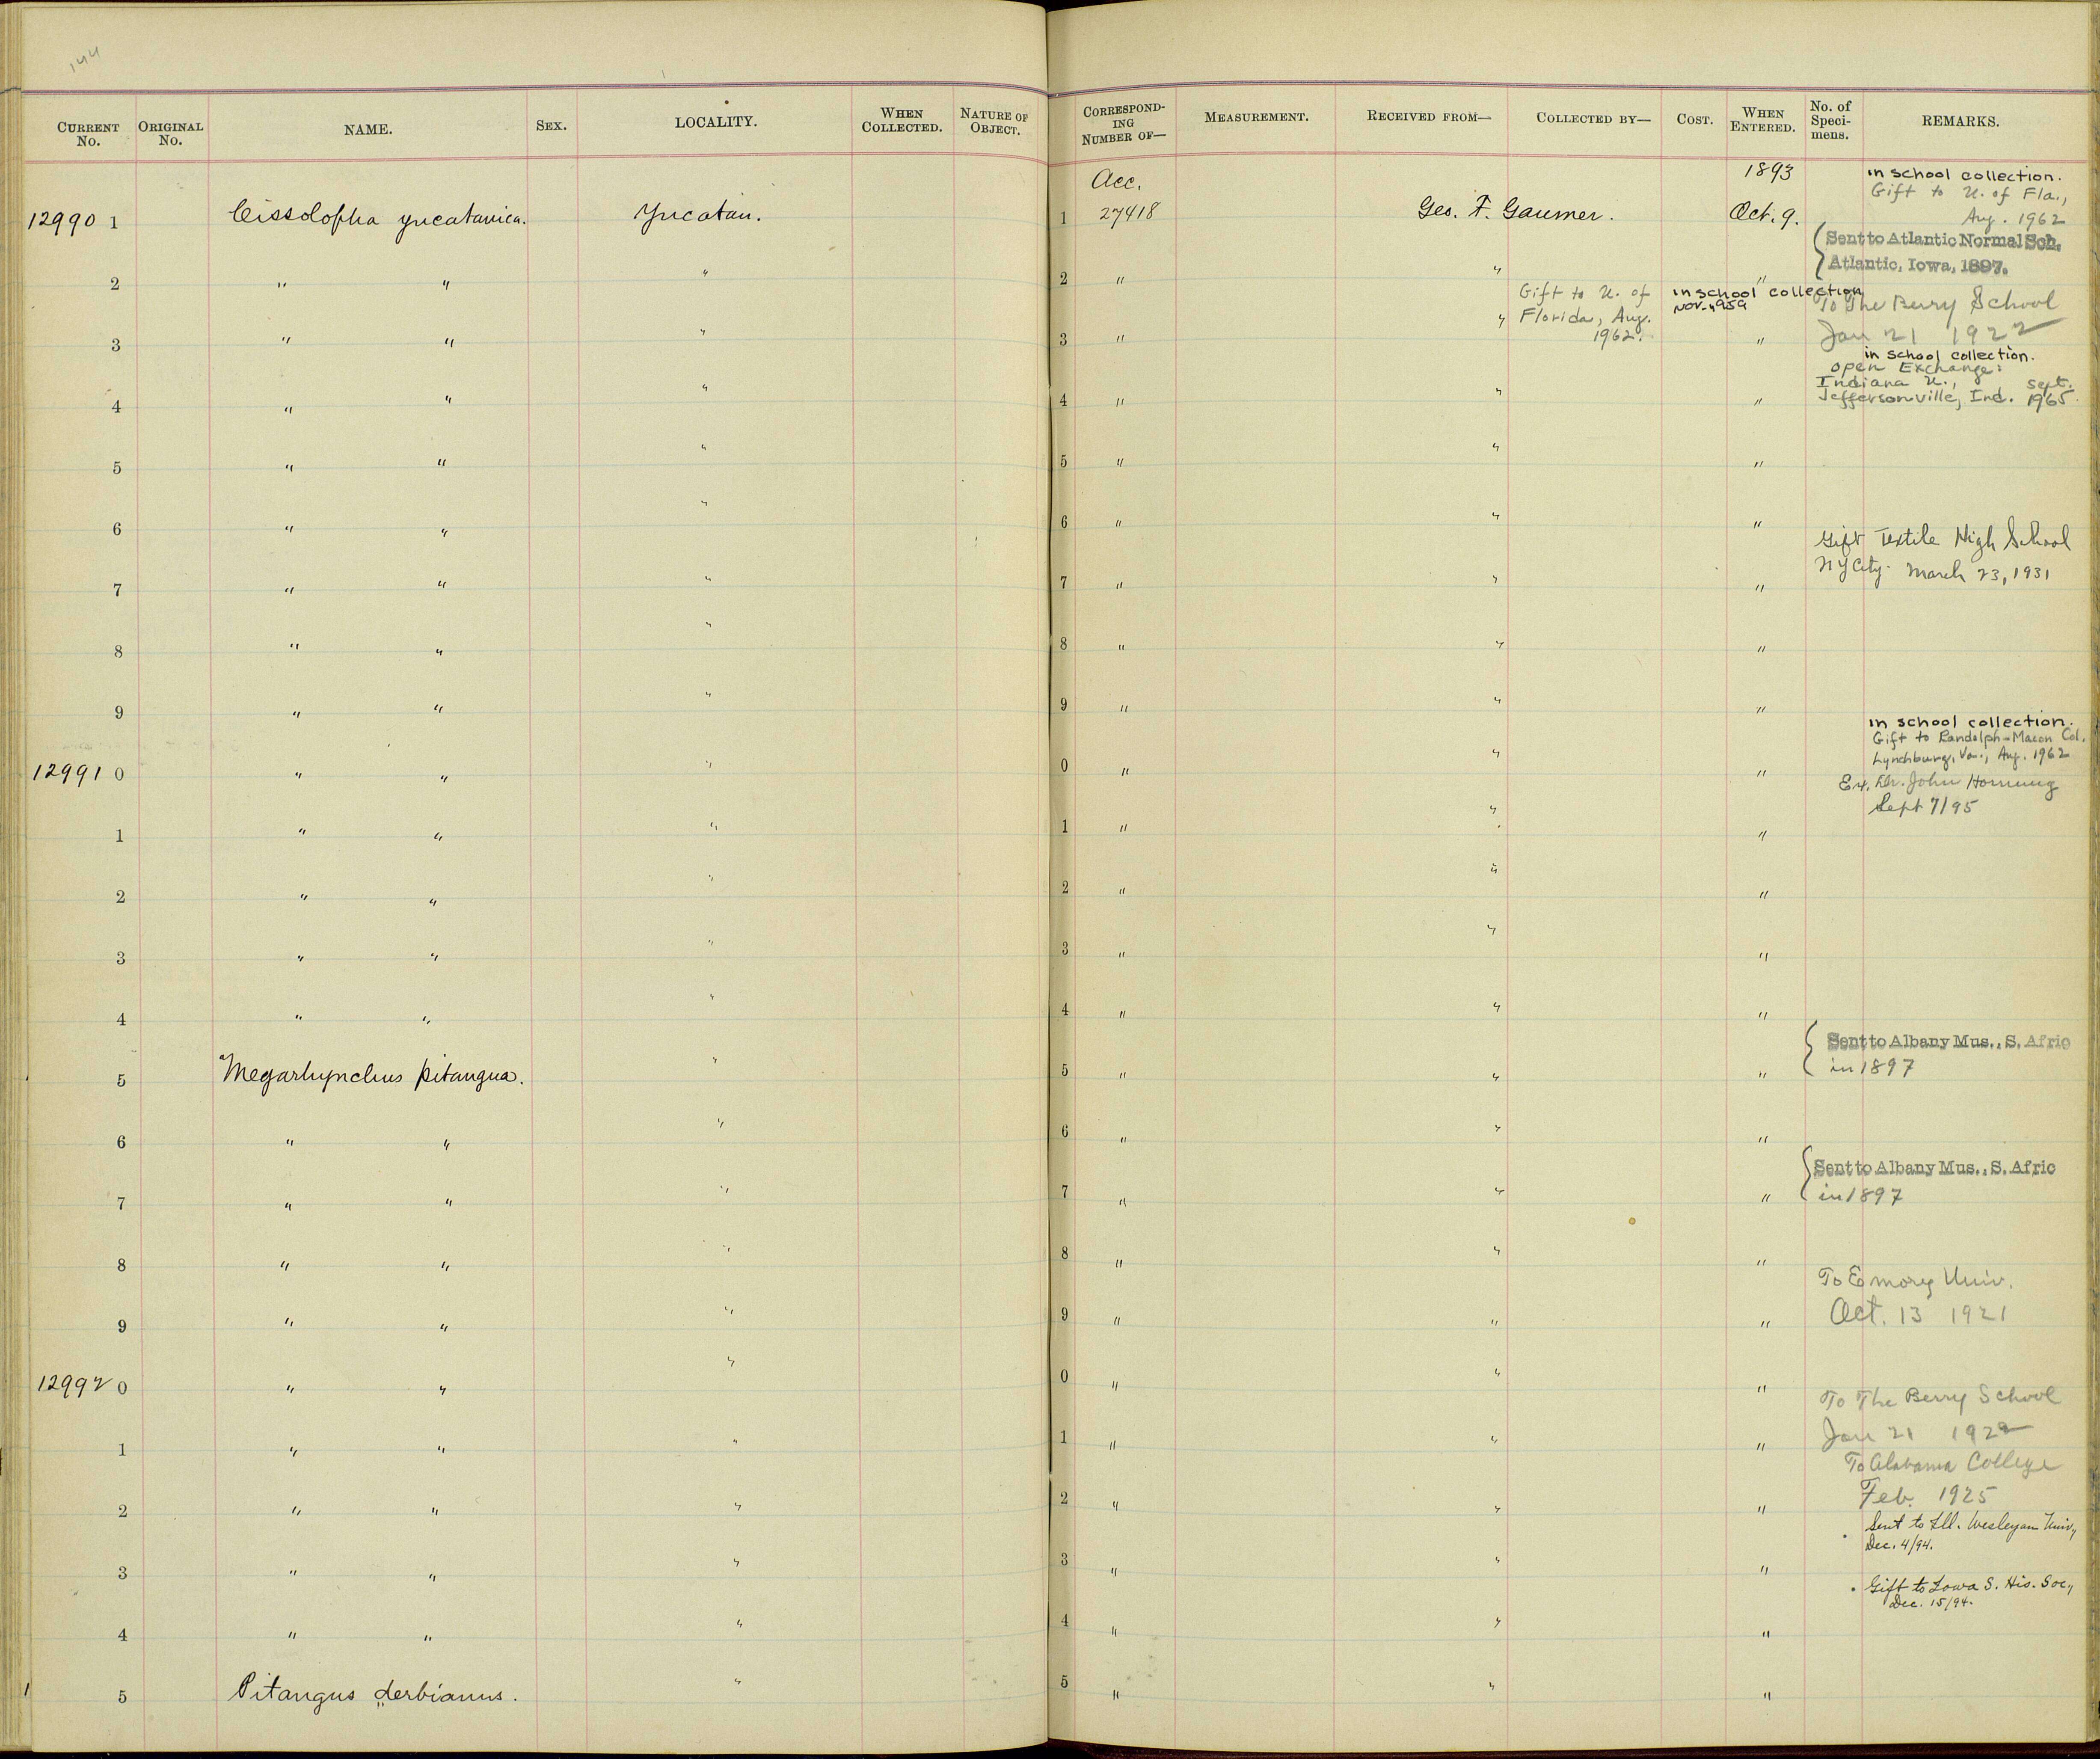 144
CURRENT No. ORIGINAL No. NAME. SEX. LOCALITY. WHEN COLLECTED. NATURE OF OBJECT. CORRESPONDING NUMBER OF— MEASUREMENT. RECEIVED FROM— COLLECTED BY— COST. WHEN ENTERED. No. of Specimens. REMARKS.
Acc. 1893 in school collection.
Gift to U. of Fla.,
Aug. 1962
12990 1 Cissolopha yucatanica. Yucatan. 1 27418 Geo. F. Gaumer. Oct. 9.
Sent to Atlantic Normal Sch.
Atlantic, Iowa, 1897.
2 " " " 2 " " "
Gift to U. of in school collection To The Berry School
Florida, Aug. Nov. 1959
1962. Jan 21 1922
3 " " " 3 " " "
in school collection.
open Exchange:
Indiana U., Sept.
Jeffersonville, Ind. 1965.
4 " " " 4 " " "
5 " " " 5 " " "
6 " " " 6 " " "
Gift Textile High School
N Y City. March 23, 1931
7 " " " 7 " " "
8 " " " 8 " " "
9 " " " 9 " " "
in school collection.
Gift to Randolph-Macon Col.
Lynchburg, Va., Aug. 1962
12991 0 " " " 0 " " "
Ex. Dr. John Hornung
Sept 7/95
1 " " " 1 " " "
2 " " " 2 " " "
3 " " " 3 " " "
4 " " " 4 " " "
Sent to Albany Mus., S. Afric
in 1897
5 Megarhynchus pitangua. " 5 " " "
6 " " " 6 " " "
Sent to Albany Mus., S. Afric
in 1897
7 " " " 7 " " "
8 " " " 8 " " "
To Emory Univ.
Oct. 13 1921
9 " " " 9 " " "
12992 0 " " " 0 " " "
To The Berry School
Jan 21 1922
1 " " " 1 " " "
To Alabama College
Feb. 1925
2 " " " 2 " " "
Sent to Ill. Wesleyan Univ,
Dec. 4/94.
3 " " " 3 " " "
Gift to Iowa S. His. Soc.,
Dec. 15/94.
4 " " " 4 " " "
5 Pitangus derbianus. " 5 " " "